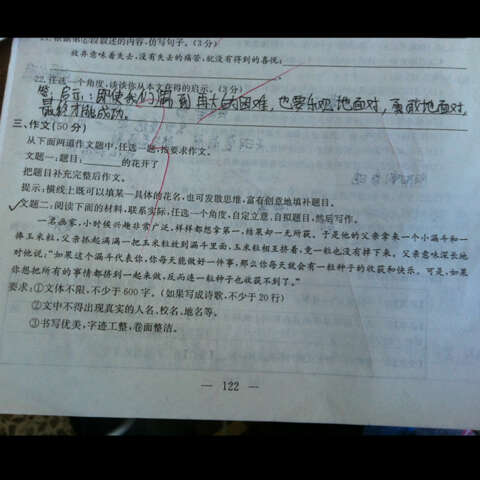 21. 根据第②段叙述的内容,仿写句子。(3分)
放弃意味着失去,没有失去的痛苦,就没有得到的喜悦;
22. 任选一个角度,谈谈你从本文获得的启示。(3分)
答:启示:即使我们遇到再大大困难,也要乐观地面对,勇敢地面对,
最终才能成功。
三、作文(50分)
从下面两道作文题中,任选一题,按要求作文。
文题一:题目:______的花开了
把题目补充完整后作文。
提示:横线上既可以填某一具体的花名,也可发散思维,富有创意地填补题目。
文题二:阅读下面的材料,联系实际,任选一个角度,自定立意,自拟题目,然后写作。
一名画家,小时候兴趣非常广泛,样样都想拿第一,结果却一无所获。于是他的父亲拿来一个小漏斗和一
捧玉米粒,父亲抓起满满一把玉米粒放到漏斗里面,玉米粒相互挤着,竟一粒也没有掉下来。父亲意味深长地
对他说:“如果这个漏斗代表你,你每天能做好一件事,那么你每天就会有一粒种子的收获和快乐。可是,如果
你想把所有的事情都挤到一起来做,反而连一粒种子也收获不到了。”
要求:①文体不限,不少于600字。(如果写成诗歌,不少于20行)
②文中不得出现真实的人名、校名、地名等。
③书写优美,字迹工整,卷面整洁。
— 122 —